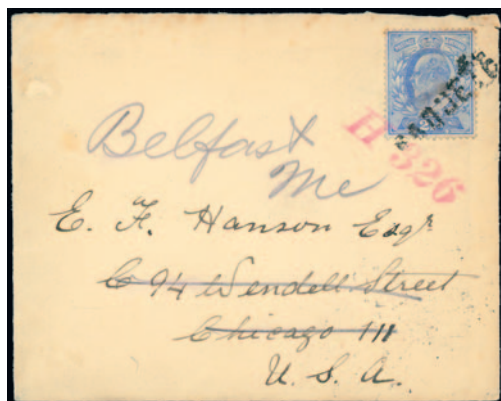 Belfast
Me
H 326
E. F. Hanson Esqr
94 Wendell Street
Chicago Ill
U. S. A.